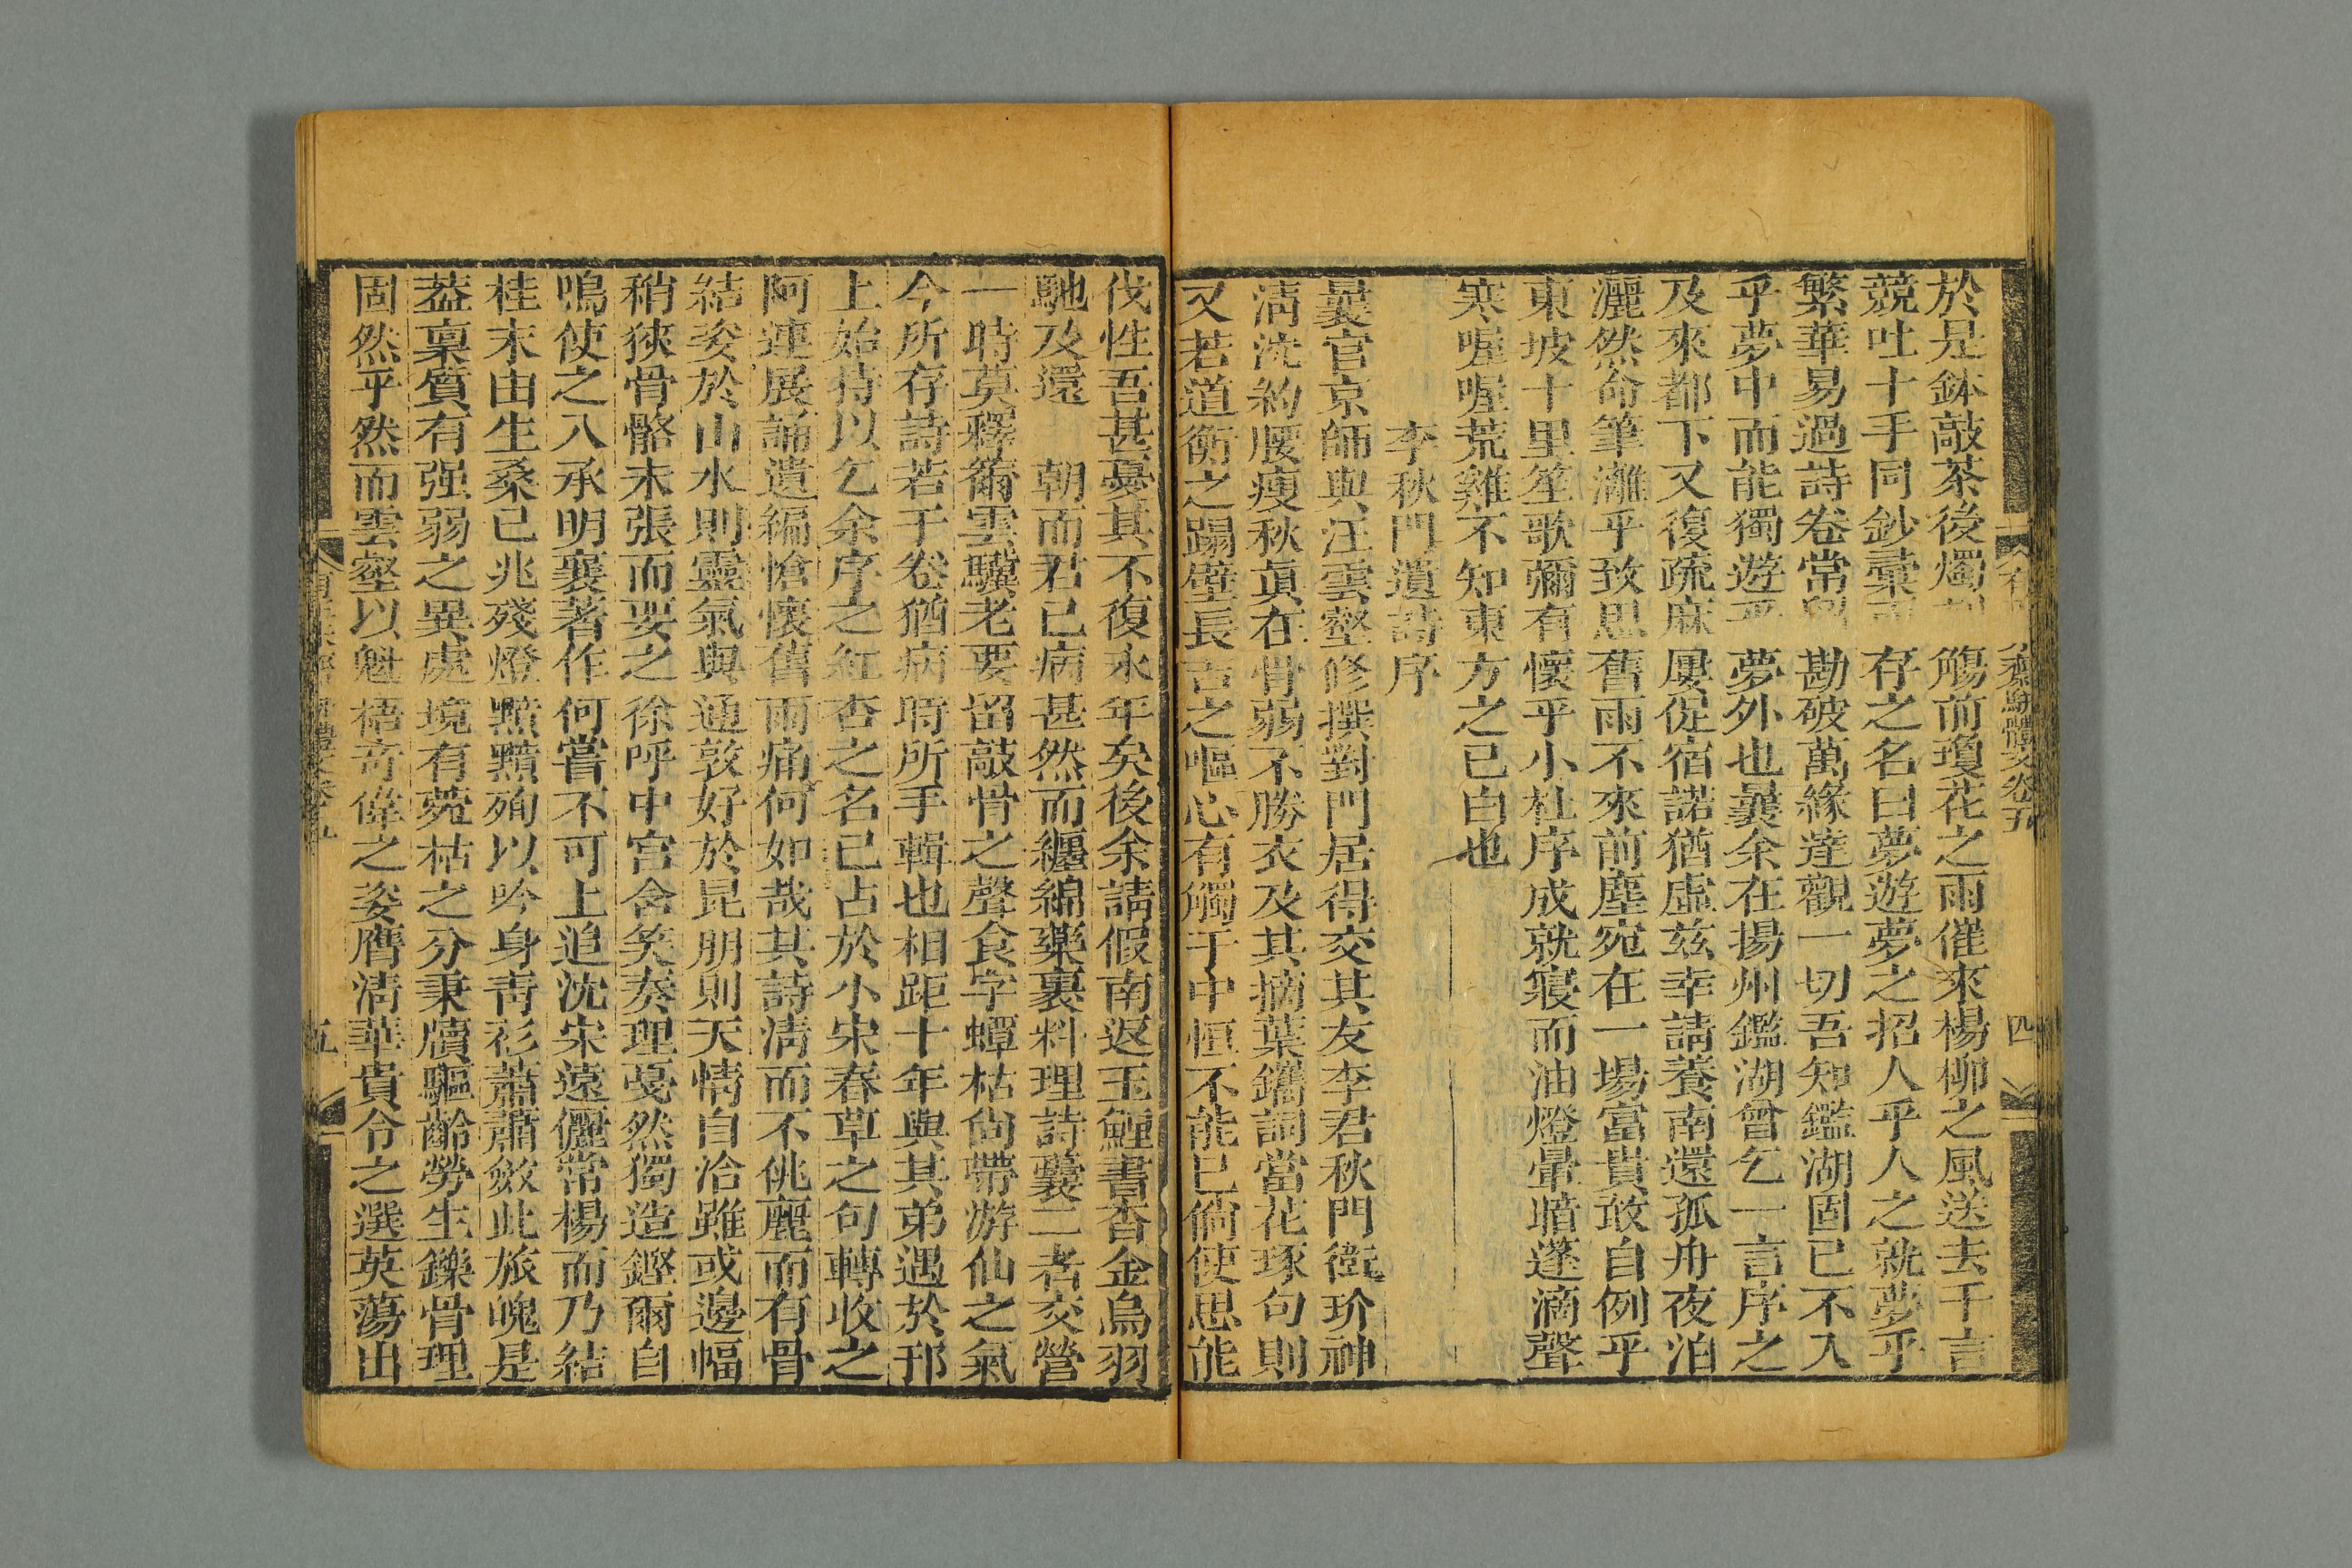 於是鉢敲茶後燭 觴前瓊花之雨催來楊柳之風送去千言
競吐十手同鈔彙 存之名曰夢遊夢之招人乎人之就夢乎
繁華易過詩卷常 勘破萬緣達觀一切吾知鑑湖固已不入
乎夢中而能獨遊乎夢外也曩余在揚州鑑湖曾乞一言序之
及來都下又復疏麻屢促宿諾猶虛茲幸請養南還孤舟夜泊
灑然命筆灕乎致思舊雨不來前塵宛在一場富貴敢自例乎
東坡十里笙歌彌有懷乎小杜序成就寢而油燈暈暗蓬滴聲
寒喔喔荒雞不知東方之已白也
李秋門遺詩序
曩官京師與汪雲壑修撰對門居得交其友李君秋門衛玠神
淸沈約腰瘦秋真在骨弱不勝衣及其摘葉鐫詞當花琢句則
又若道衡之蹋壁長吉之嘔心有觸于中恒不能已倘使思能
駢體文卷五
四
伐性吾甚憂其不復永年矣後余請假南返玉鯉書杳金烏羽
馳及還 朝而君已病甚然而纏綿藥裹料理詩囊二者交營
一時莫釋籋雲驥老要留敲骨之聲食字蟫枯尙帶游仙之氣
今所存詩若干卷猶病時所手輯也相距十年與其弟遇於邗
上始持以乞余序之紅杏之名已占於小宋春草之句轉收之
阿連展誦遺編愴懷舊雨痛何如哉其詩淸而不佻麗而有骨
結姿於山水則靈氣與通敦好於昆朋則天情自洽雖或邊幅
稍狹骨骼未張而要之徐呼中宮含笑奏理戛然獨造鏗爾自
鳴使之入承明襄著作何嘗不可上追沈宋遠儷常楊而乃結
桂末由生桑已兆殘燈黯黮殉以吟身靑衫蕭蕭斂此旅魄是
葢稟質有强弱之異處境有菀枯之分秉牘驅齡勞生鑠骨理
固然乎然而雲壑以魁梧奇偉之姿膺淸華貴令之選英蕩出
五